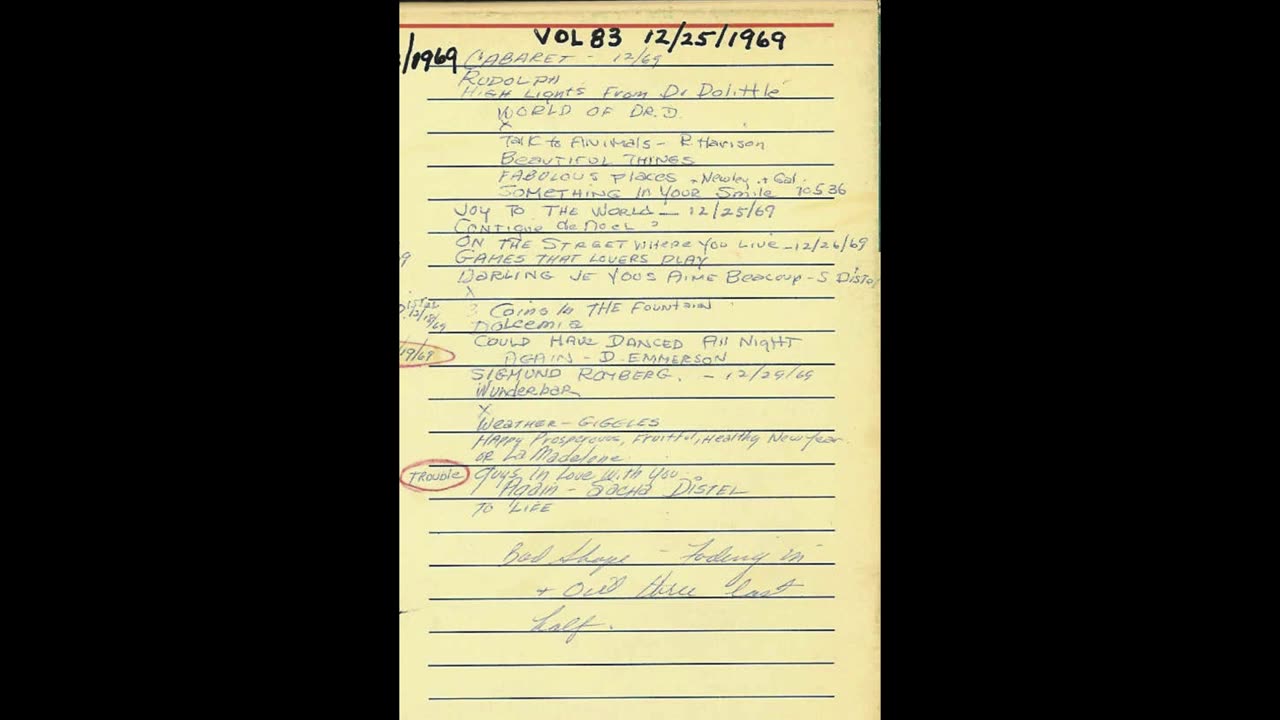 VOL 83 12/25/1969
/1969 CABARET - 12/69
RUDOLPH
HIGH LIGHTS From Dr Dolittle
WORLD OF DR. D.
X
TALK to ANIMALS - R. Harison
BEAUTIFUL THINGS
FABOLOUS PLACES - Newley + Gal.
SOMETHING IN YOUR Smile 10536
JOY TO THE WORLD - 12/25/69
Contique de Noel ?
ON THE STREET WHERE YOU LIVE - 12/26/69
9 GAMES THAT LOVERS PLAY
DARLING JE VOUS AIME BEACOUP - S DISTEL
X
3 COINS IN THE FOUNTAIN
12/18/69 DOLCEMIA
COULD HAVE DANCED All NIGHT
19/69 AGAIN - D. EMMERSON
SIGMUND ROMBERG. - 12/29/69
Wunderbar
X
WEATHER - GIGGLES
HAPPY Prosperous, Fruitful, Healthy New Year
OR La Madalene
TROUBLE Guys In Love With You
Again - SACHA DISTEL
TO LIFE
Bad Shape - Fading in
+ Out thru last
half.